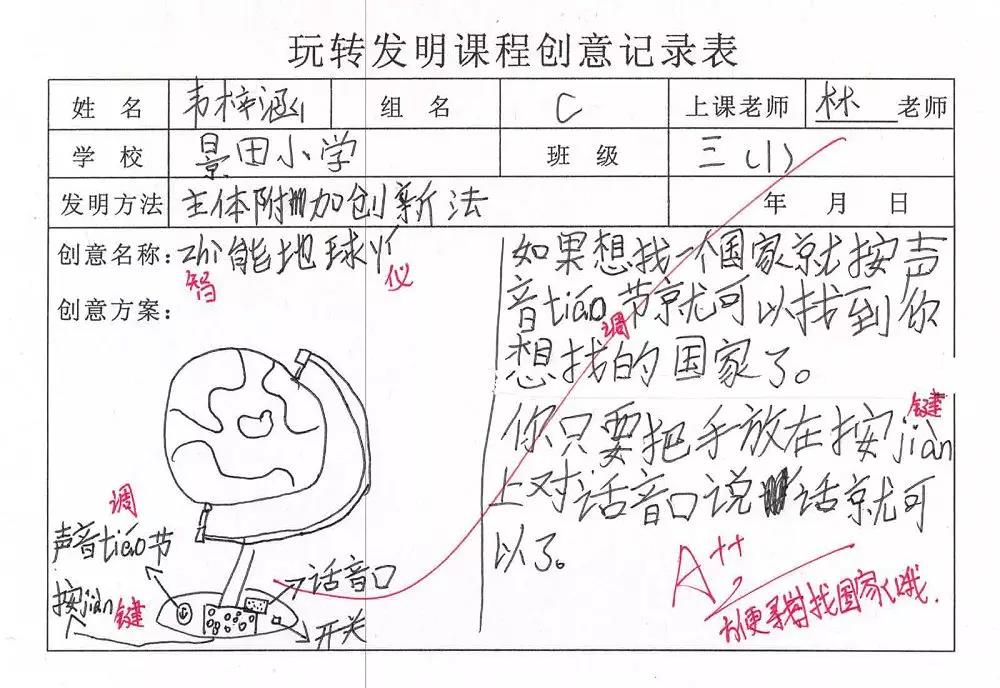 玩转发明课程创意记录表
姓 名 韦梓涵 组 名 C 上课老师 林 老师
学 校 景田小学 班 级 三(1)
发明方法 主体附加创新法 年 月 日
创意名称：zhi能地球仪
智 仪
创意方案：
调
声音tiáo节
按jiàn 键
话音口
开关
如果想找一个国家就按声
音tiáo节就可以找到你
调
想找的国家了。
键
你只要把手放在按jiàn
上对话音口说话就可
以了。
A++
方便寻找国家哦.